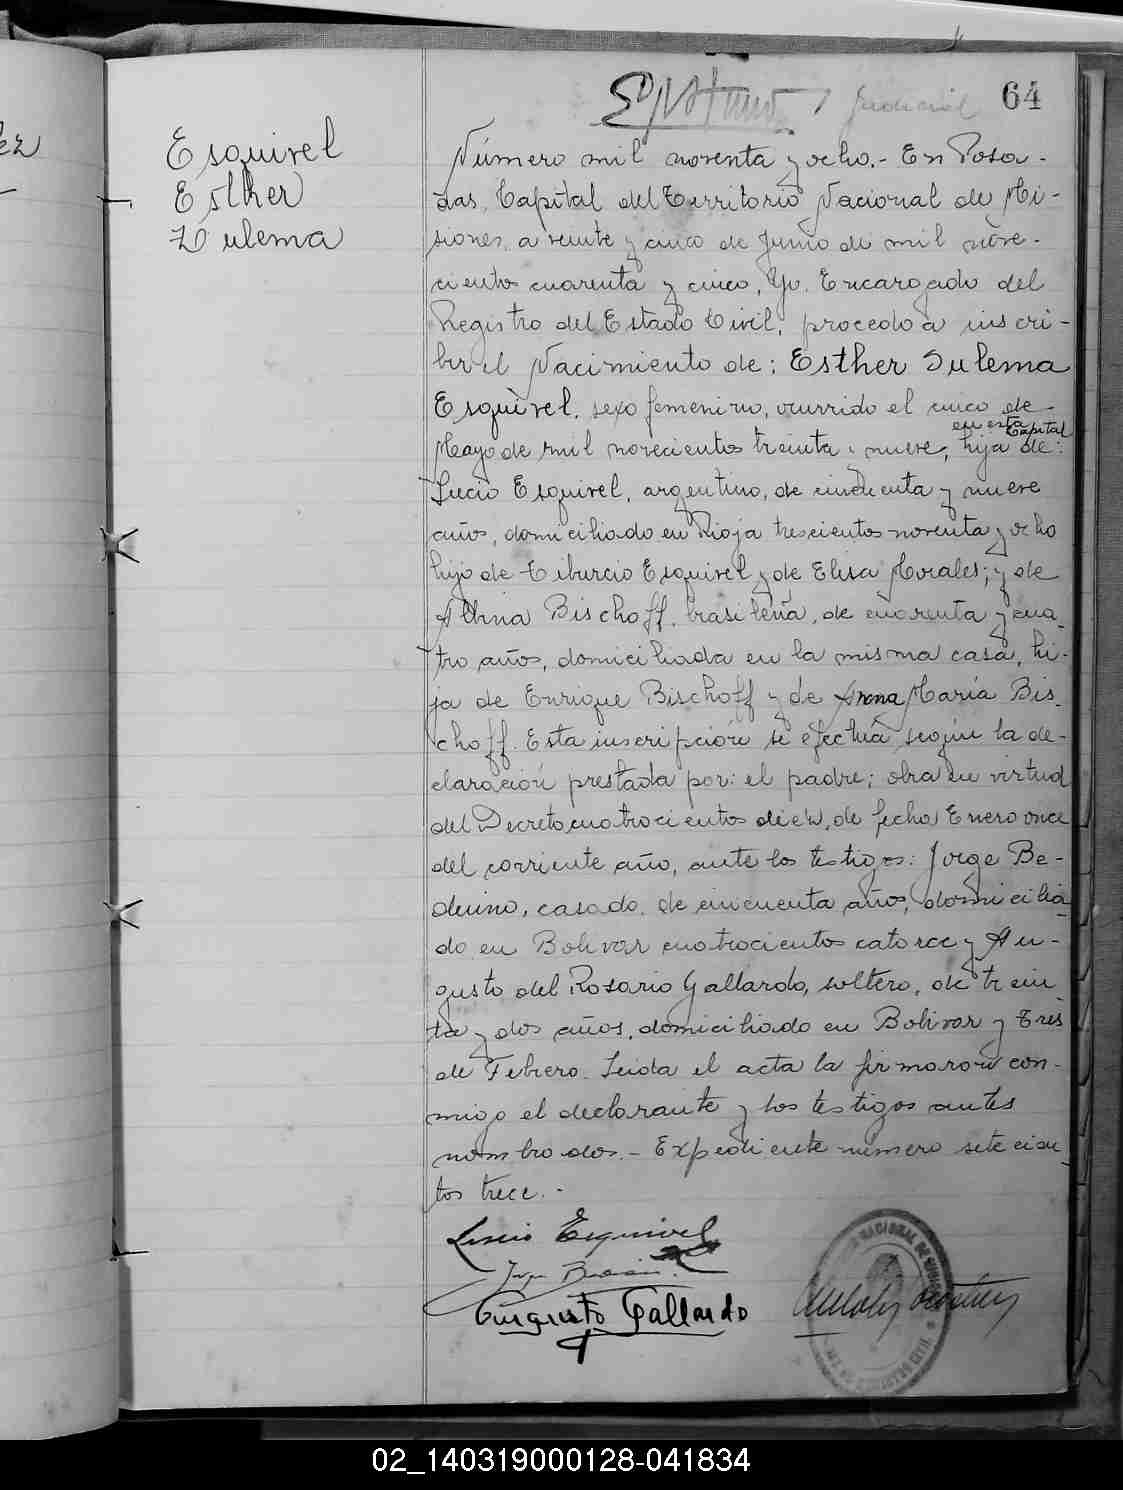 64
Esquivel
Esther
Zulema
Número mil noventa y ocho.- En Posa-
das, Capital del Territorio Nacional de Mi-
siones, a veinte y cinco de Junio de mil nove-
cientos cuarenta y cinco, Yo, Encargado del
Registro del Estado Civil, procedo a inscri-
bir el Nacimiento de: Esther Sulema
Esquivel, sexo femenino, ocurrido el cinco de
en esta Capital
Mayo de mil novecientos treinta y nueve, hija de:
Lucio Esquivel, argentino, de cincuenta y nueve
años, domiciliado en Rioja trescientos noventa y ocho
hijo de Tiburcio Esquivel y de Elisa Morales; y de
Bischoff, brasileña, de cuarenta y cua-
tro años, domiciliada en la misma casa, hi-
ja de Enrique Bischoff y de Anna María Bis-
choff. Esta inscripción se efectúa según la de-
claración prestada por: el padre; obra en virtud
del Decreto cuatrocientos diez, de fecha Enero once
del corriente año, ante los testigos: Jorge Be-
duino, casado, de cincuenta años, domicilia-
do en Bolivar cuatrocientos catorce y Au-
gusto del Rosario Gallardo, soltero, de trein-
ta y dos años, domiciliado en Bolivar y Tres
de Febrero. Leida el acta la firmaron con-
migo el declarante y los testigos antes
nombrados.- Expediente número setecien-
tos trece.-
Lucio Esquivel
Augusto Gallardo
02_140319000128-041834